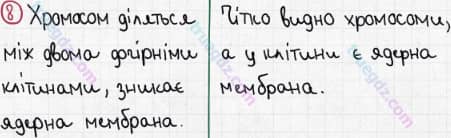 8 Хромосом діляться
між двома дочірніми
клітинами, зникає
ядерна мембрана.
Чітко видно хромосоми,
а у клітини є ядерна
мембрана.